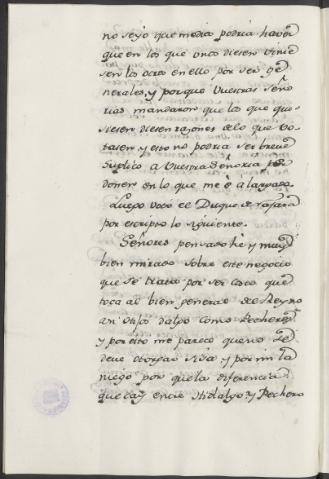 no se yo que media podria haver
que en los que unos diesen vinie
sen los otros en ello por ser ge
nerales, y porque Vuestras Seño
rias mandaron que los que qui
siesen diesen razones de lo que vo
tasen y esto no podria ser breve
Suplico a Vuestra Señoria per
donen en lo que me é alargado.
Luego voto el Duque de
por escripto lo siguiente.
Señores pensado hè y muy
bien mirado sobre este negocio
que se trata por ser cosa que
toca al bien general del Reyno
an Hijos dalgo como Pecheros
y por esto me parece que no se
deve otorgar Sisa y por mi la
niego por que la diferencia
que ay entre Hidalgo y Pechero